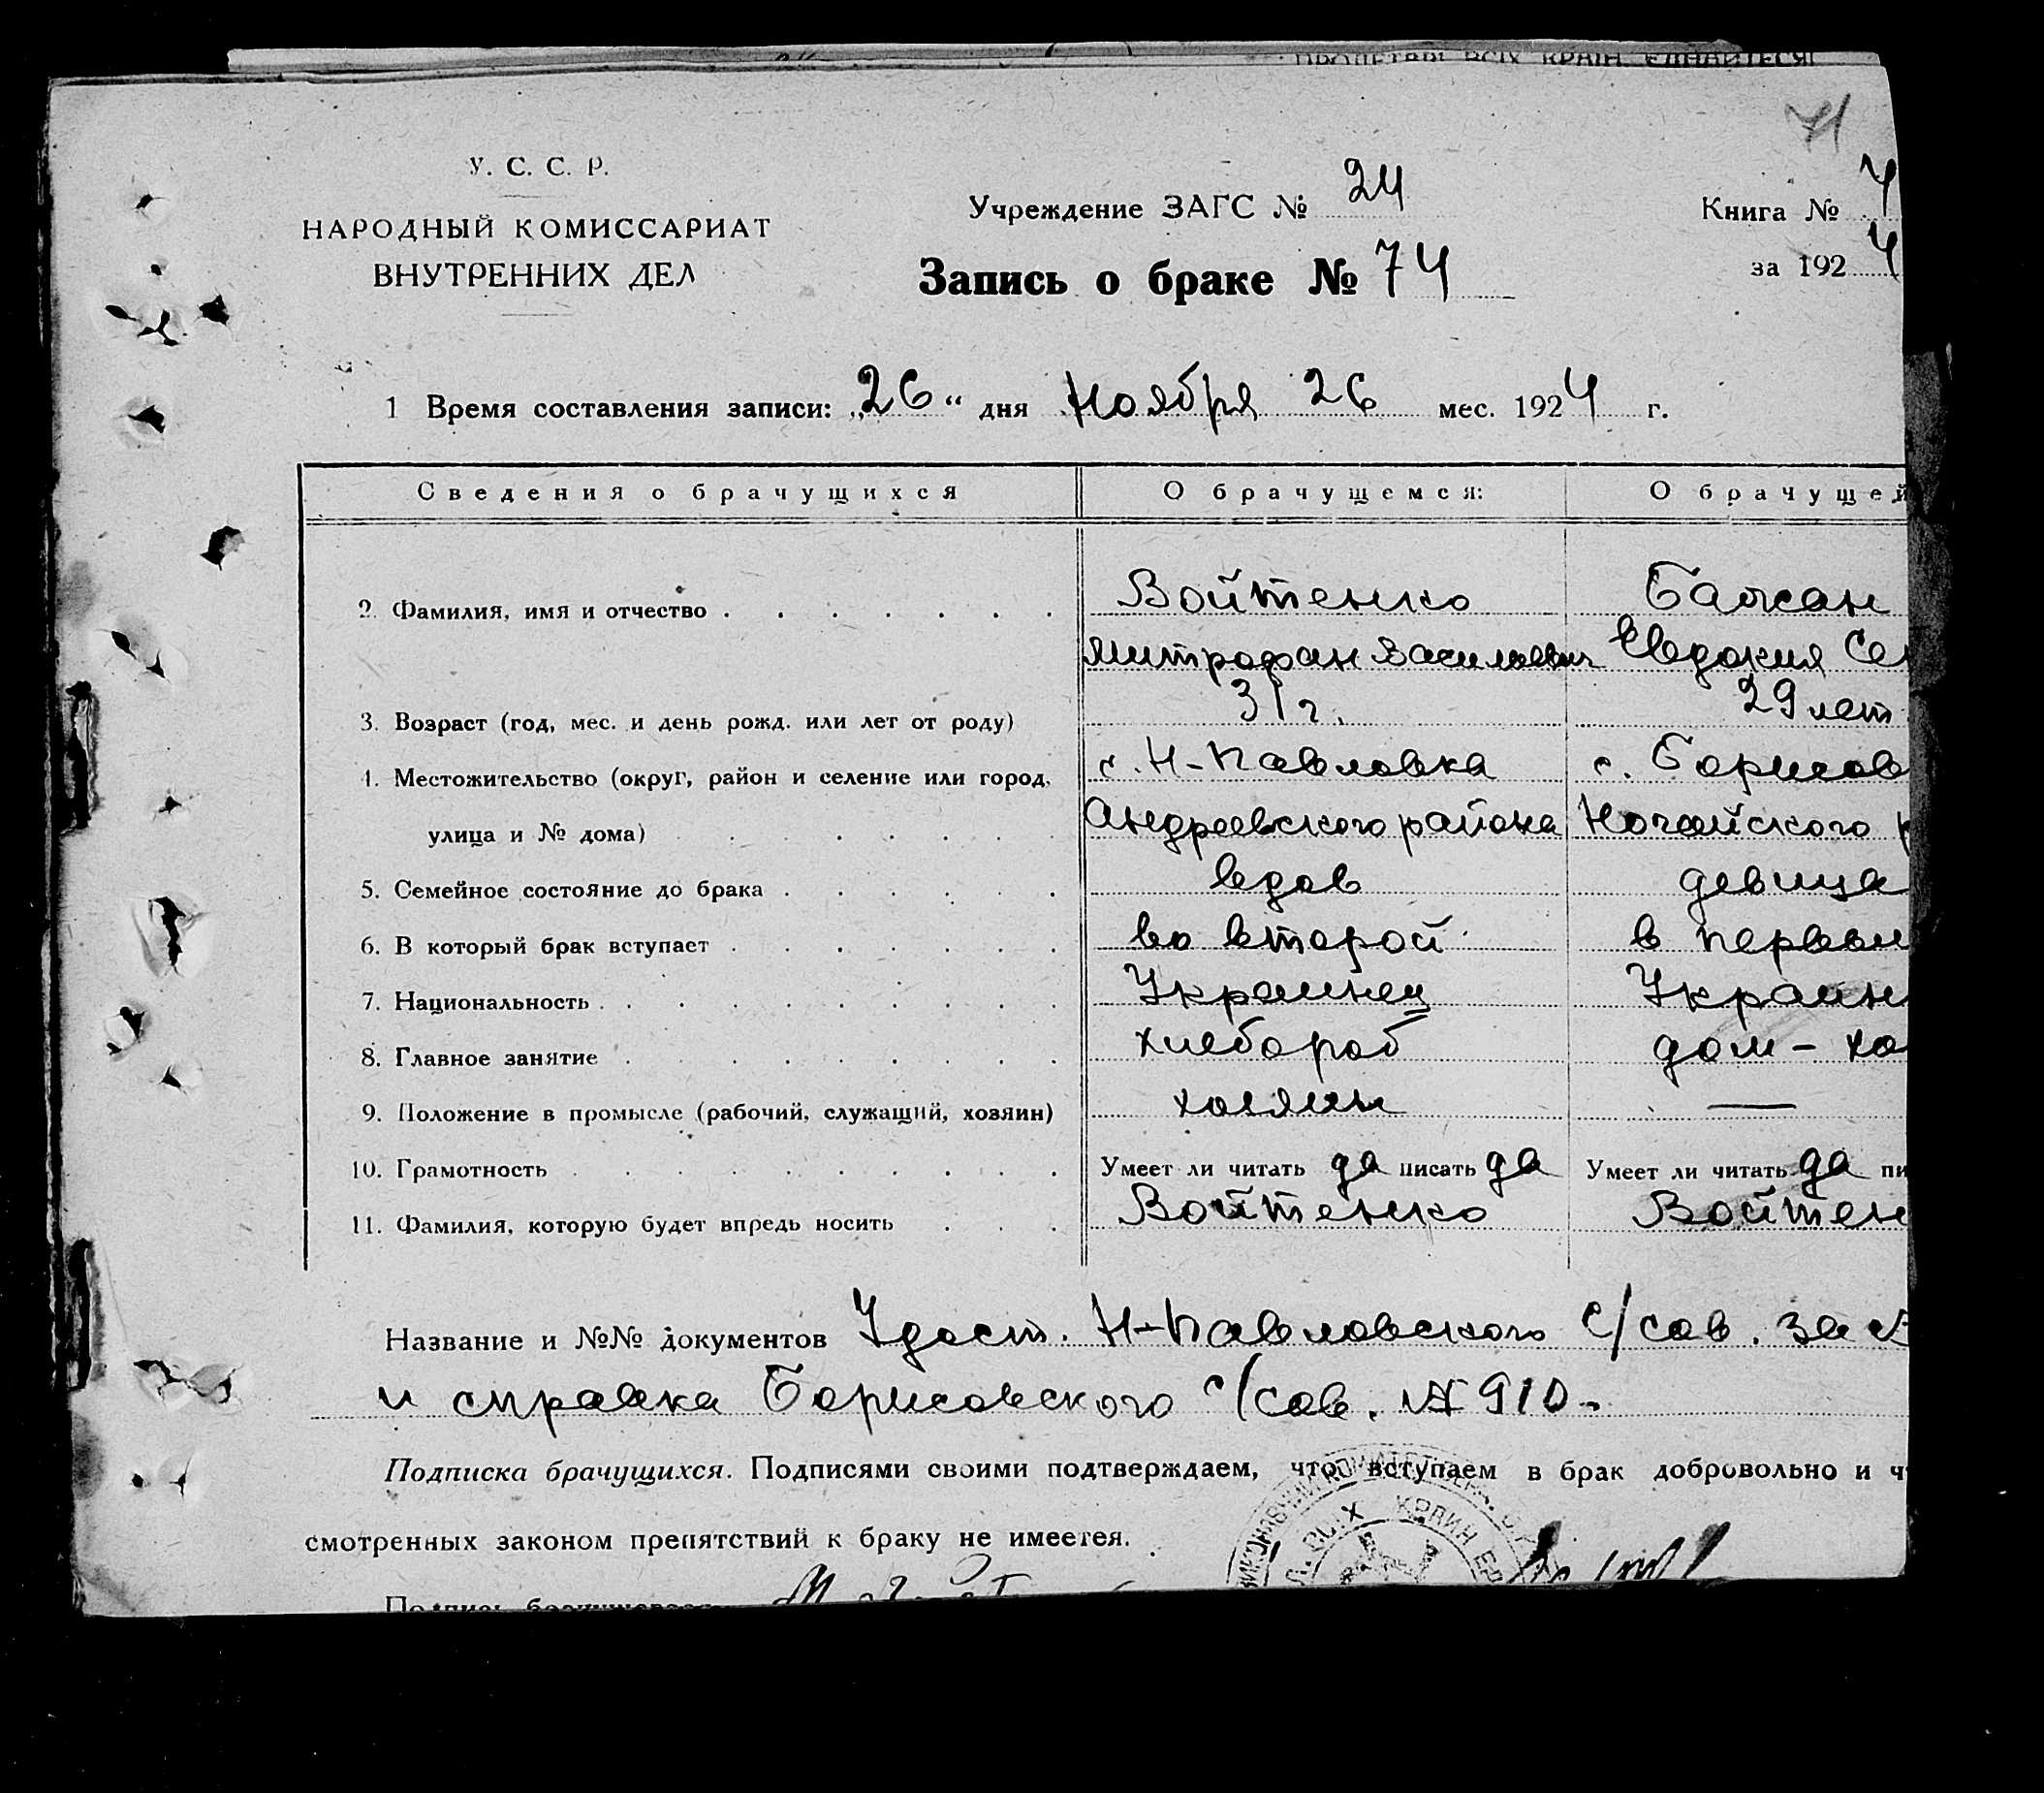 ПРОЛЕТАРІ ВСІХ КРАЇН, ЄДНАЙТЕСЯ!
71
У. С. С. Р.
НАРОДНЫЙ КОМИССАРИАТ
ВНУТРЕННИХ ДЕЛ
Учреждение ЗАГС № 24
Запись о браке № 74
Книга №
за 1924
1 Время составления записи: „26“ дня Ноября 26 мес. 1924 г.
Сведения о брачущихся О брачущемся: О брачущей
2. Фамилия, имя и отчество Войтенко Бажан
Митрофан Васильевич Евдокия Се
3. Возраст (год, мес. и день рожд. или лет от роду) 31 г. 29 лет
4. Местожительство (округ, район и селение или город, с. Н-Павловка с. Борисов
улица и № дома) Андреевского района Ногайского р
5. Семейное состояние до брака вдов девица
6. В который брак вступает во второй в первый
7. Национальность Украинец Украин
8. Главное занятие хлебороб дом - хо
9. Положение в промысле (рабочий, служащий, хозяин) хозяин —
10. Грамотность Умеет ли читать да писать да Умеет ли читать да пи
11. Фамилия, которую будет впредь носить Войтенко Войтен
Название и №№ документов Удост. Н-Павловского с/сов. за №
и справка Борисовского с/сов. № 910.
Подписка брачущихся. Подписями своими подтверждаем, что вступаем в брак добровольно и ч
смотренных законом препятствий к браку не имеется.